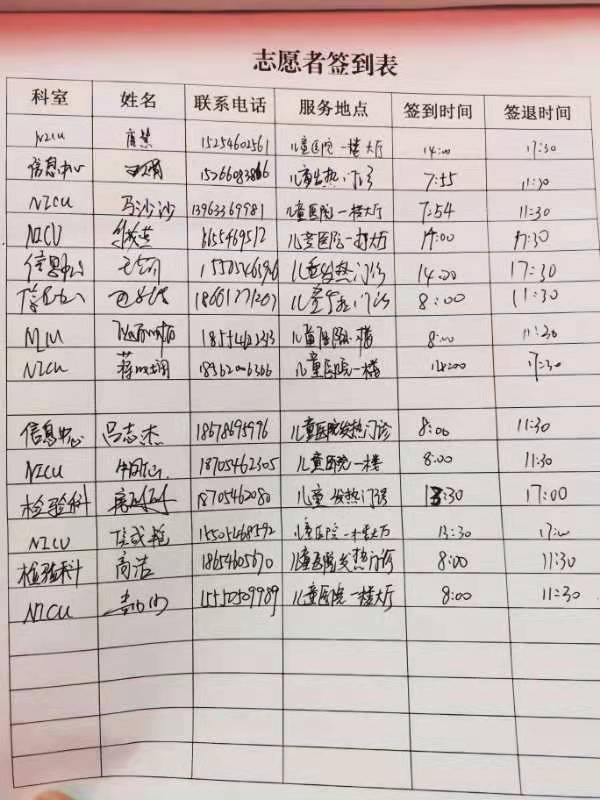 志愿者签到表
科室 姓名 联系电话 服务地点 签到时间 签退时间
NICU 15254602561 儿童医院一楼大厅 14:00 17:30
信息中心 15266083866 儿童发热门诊 7:55 11:30
NICU 马沙沙 13963369981 儿童医院一楼大厅 7:54 11:30
NICU 儿童医院一楼大厅 14:00 17:30
信息中心 儿童发热门诊 14:00 17:30
信息中心 儿童发热门诊 8:00 11:30
NICU 儿童医院一楼 8:00 11:30
NICU 18362006366 儿童医院一楼 17:30
信息中心 吕志杰 18678695996 儿童医院发热门诊 8:00 11:30
NICU 18705462305 儿童医院一楼 8:00 11:30
检验科 18705462080 儿童发热门诊 13:30 17:00
NICU 儿童医院一楼大厅 13:30 17:00
检验科 高洁 18654605670 儿童医院发热门诊 8:00 11:30
NICU 15550509989 儿童医院一楼大厅 8:00 11:30